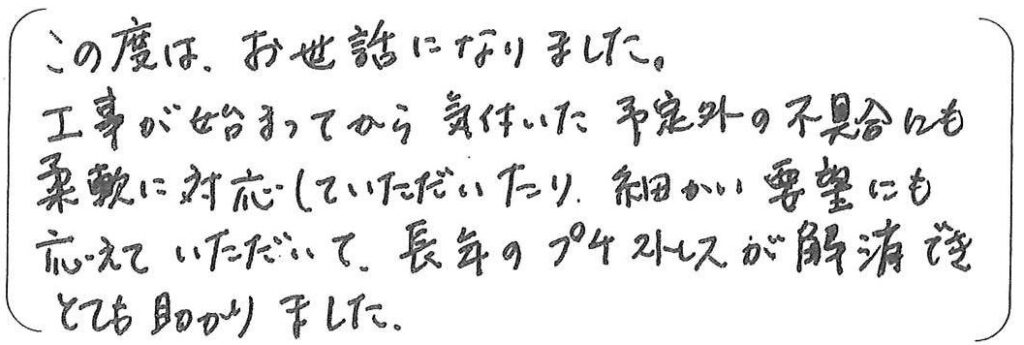 この度は、お世話になりました。
工事が始まってから気付いた予定外の不具合にも
柔軟に対応していただいたり、細かい要望にも
応えていただいて、長年のプチストレスが解消でき
とても助かりました。